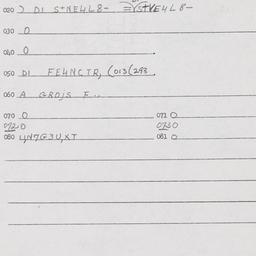 020 ) DI S+NE4L8- =YS+VE4L8-
030 0
040 0
050 DI FE4NCTR, (013(293
060 A GROJS E..
070 0 071 0
072 0 073 0
080 4N7G3U,XT 081 0